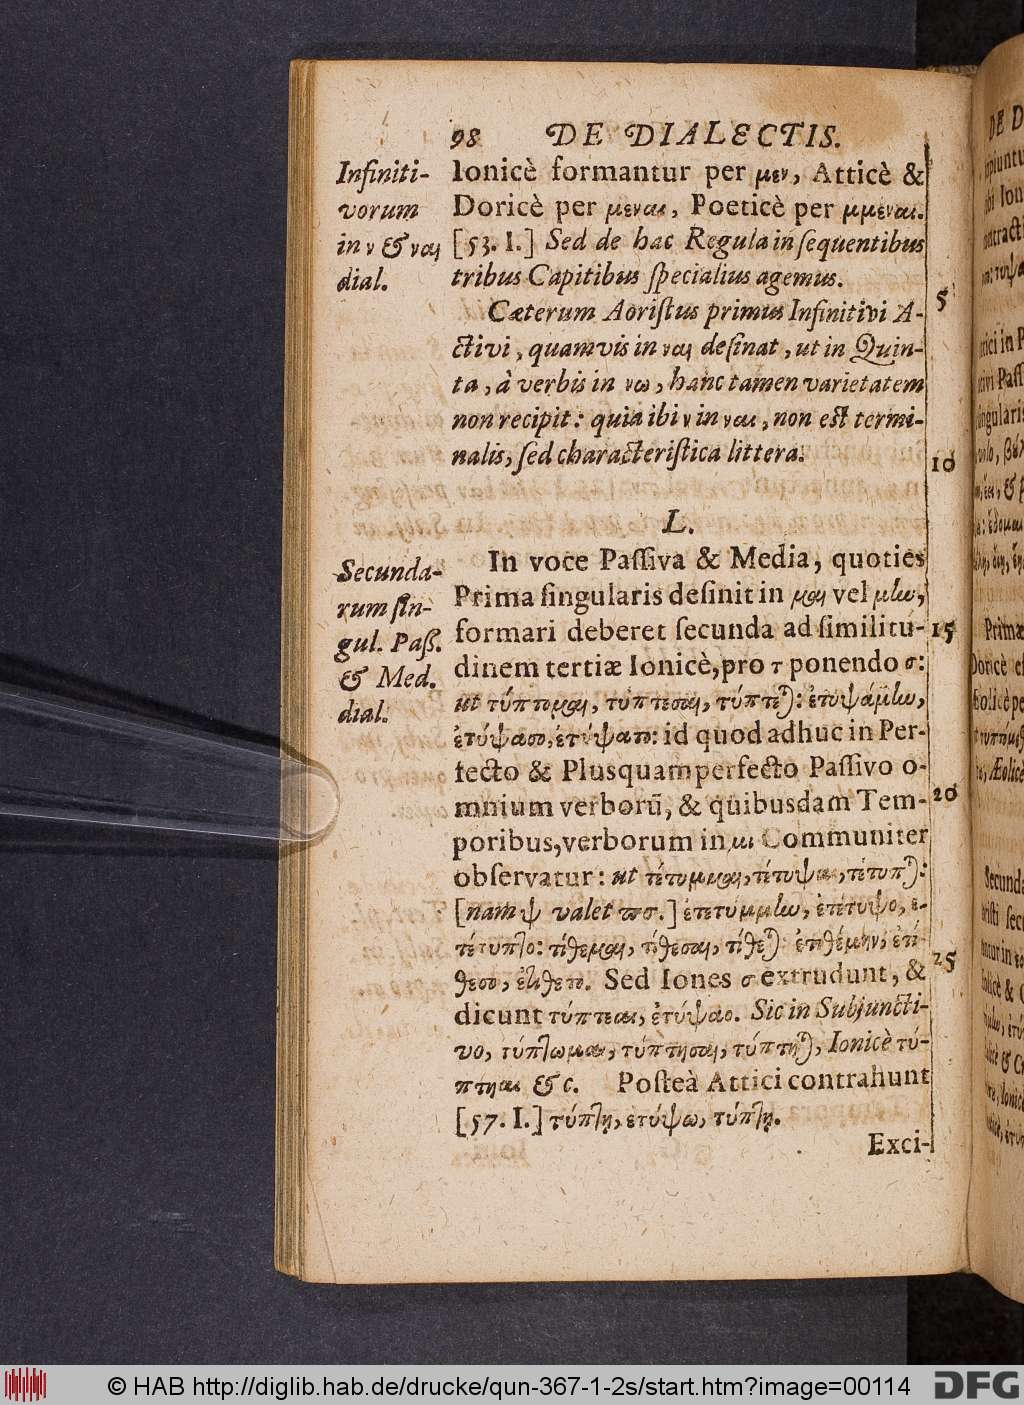 98 DE DIALECTIS.
Infiniti-
vorum
in ν & ναι
dial.
Ionicè formantur per μεν, Atticè &
Doricè per μεναι, Poeticè per μμεναι.
[53. I.] Sed de hac Regula in ſequentibus
tribus Capitibus ſpecialius agemus.
Cæterum Aoriſtus primus Infinitivi A-
ctivi, quamvis in ναι deſinat, ut in Quin-
ta, à verbis in νω, hanc tamen varietatem
non recipit: quia ibi ν in ναι, non eſt termi-
nalis, ſed characteriſtica littera.
5
10
L.
Secunda-
rum ſin-
gul. Paſſ.
& Med.
dial.
In voce Paſſiva & Media, quoties
Prima ſingularis deſinit in μαι vel μην,
formari deberet ſecunda ad ſimilitu-
dinem tertiæ Ionicè, pro τ ponendo σ:
ut τύπτομαι, τύπτεσαι, τύπτεται: ἐτυψάμην,
ἐτύψασο, ἐτύψατο: id quod adhuc in Per-
fecto & Plusquamperfecto Paſſivo o-
mnium verborũ, & quibusdam Tem-
poribus, verborum in μι Communiter
obſervatur: ut τέτυμμαι, τέτυψαι, τέτυπται:
[nam ψ valet πσ.] ἐτετύμμην, ἐτέτυψο, ἐ-
τέτυπτο: τίθεμαι, τίθεσαι, τίθεται: ἐτιθέμην, ἐτί-
θεσο, ἐτίθετο. Sed Iones σ extrudunt, &
dicunt τύπτεαι, ἐτύψαο. Sic in Subjuncti-
vo, τύπτωμαι, τύπτησαι, τύπτηται, Ionicè τύ-
πτηαι &c. Poſteà Attici contrahunt
[57. I.] τύπτῃ, ἐτύψω, τύπτῃ.
Exci-
15
20
25
© HAB http://diglib.hab.de/drucke/qun-367-1-2s/start.htm?image=00114
DFG